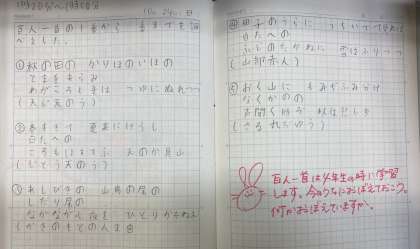 百人一首の1番から5番までを調
べました。
① 秋の田の かりほのいほの
とまをあらみ
わがころもでは つゆにぬれつつ
(天じ天のう)
② 春すぎて 夏来にけらし
白たへの
ころもほすてふ 天の香具山
(じとう天のう)
③ あしびきの 山鳥の尾の
しだり尾の
ながながし夜を ひとりかもねむ
(かきのもとの人ま呂)
④ 田子のうらに うちいでて見れば
白たへの
ふじのたかねに 雪はふりつつ
(山部赤人)
⑤ おく山に もみぢふみわけ
なくしかの
声聞く時ぞ 秋はかなしき
(さる丸だゆう)
百人一首は4年生の時に学習
します。今のうちにおぼえておこう。
何かおぼえていますか。